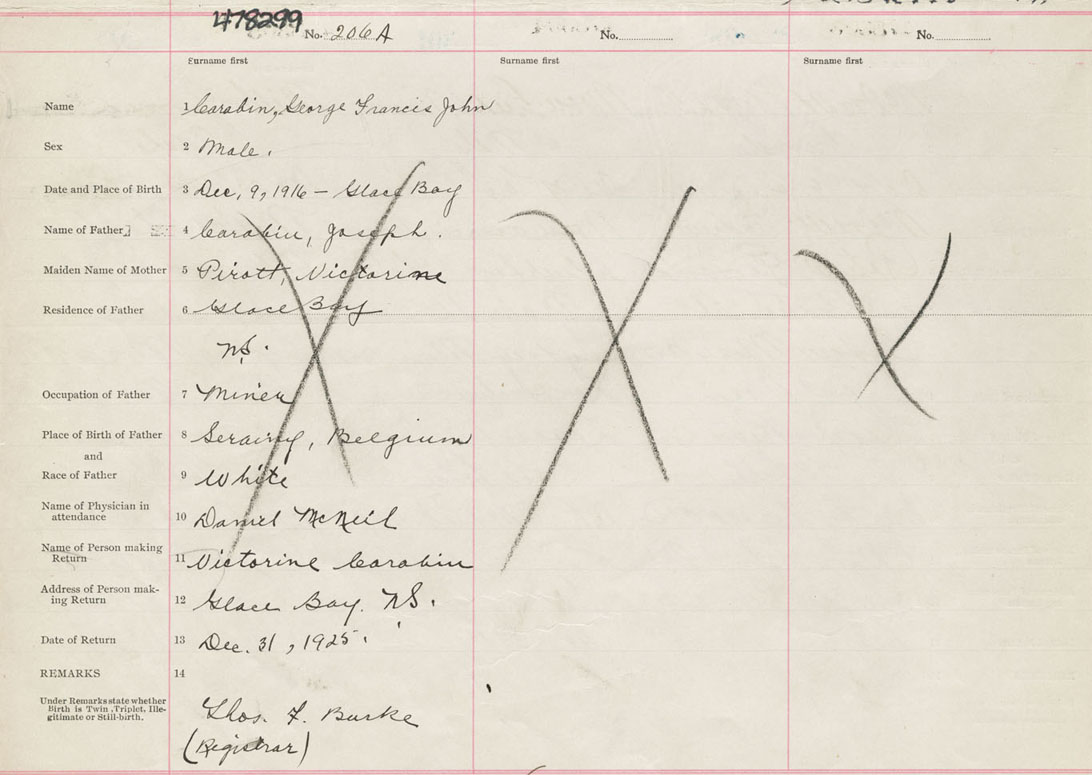 478299
No. 206A No. No.
Surname first Surname first Surname first
Name 1 Carabin, George Francis John
Sex 2 Male.
Date and Place of Birth 3 Dec, 9, 1916 – Glace Bay
Name of Father 4 Carabin, Joseph.
Maiden Name of Mother 5 Pirott, Victorine
Residence of Father 6 Glace Bay
NS.
Occupation of Father 7 Miner
Place of Birth of Father 8 Seraing, Belgium
and
Race of Father 9 White
Name of Physician in
attendance 10 Daniel McNeil
Name of Person making
Return 11 Victorine Carabin
Address of Person mak-
ing Return 12 Glace Bay. NS.
Date of Return 13 Dec. 31, 1925.
REMARKS 14
Under Remarks state whether
Birth is Twin, Triplet, Ille-
gitimate or Still-birth.
Thos. F. Burke
(Registrar)